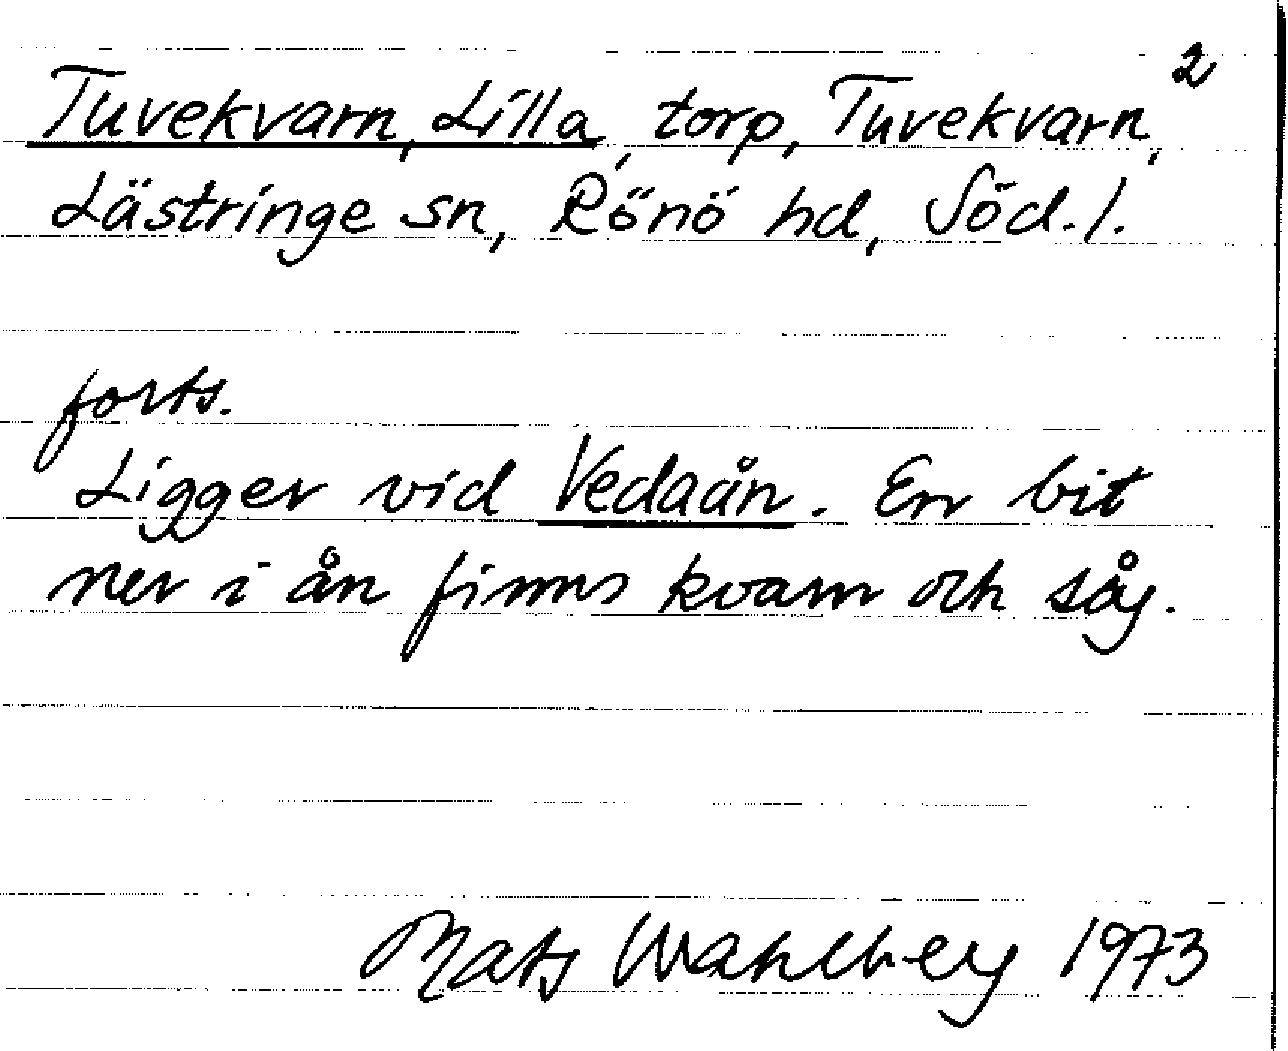 2
Tuvekvarn, Lilla, torp, Tuvekvarn,
Lästringe sn, Rönö hd, Söd.l.
forts.
Ligger vid Vedaån. En bit
ner i ån finns kvarn och såg.
Mats Wahlberg 1973